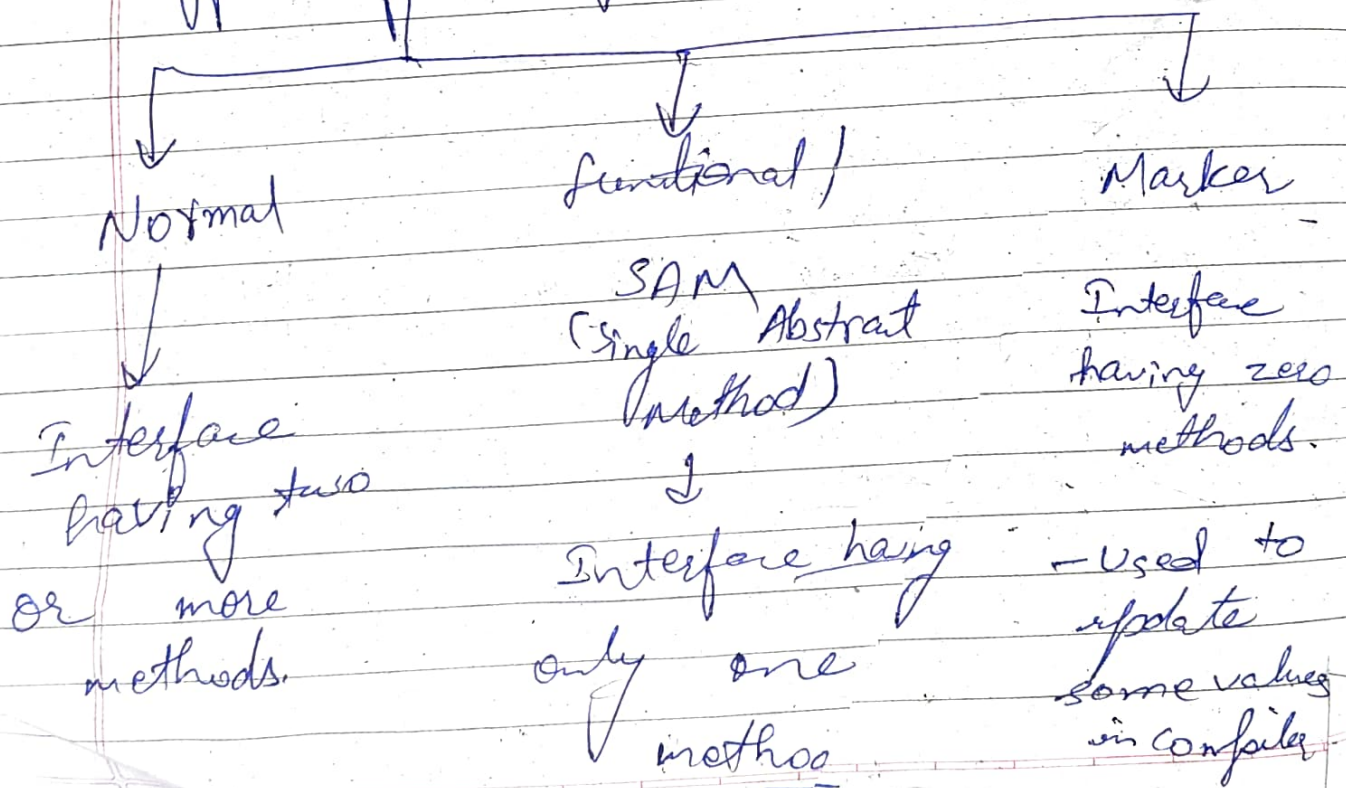 Normal
Interface
having two
or more
methods.
functional /
SAM
(Single Abstract
Method)
Interface having
only one
metho
Marker
Interface
having zero
methods.
- Used to
update
some values
in compiler